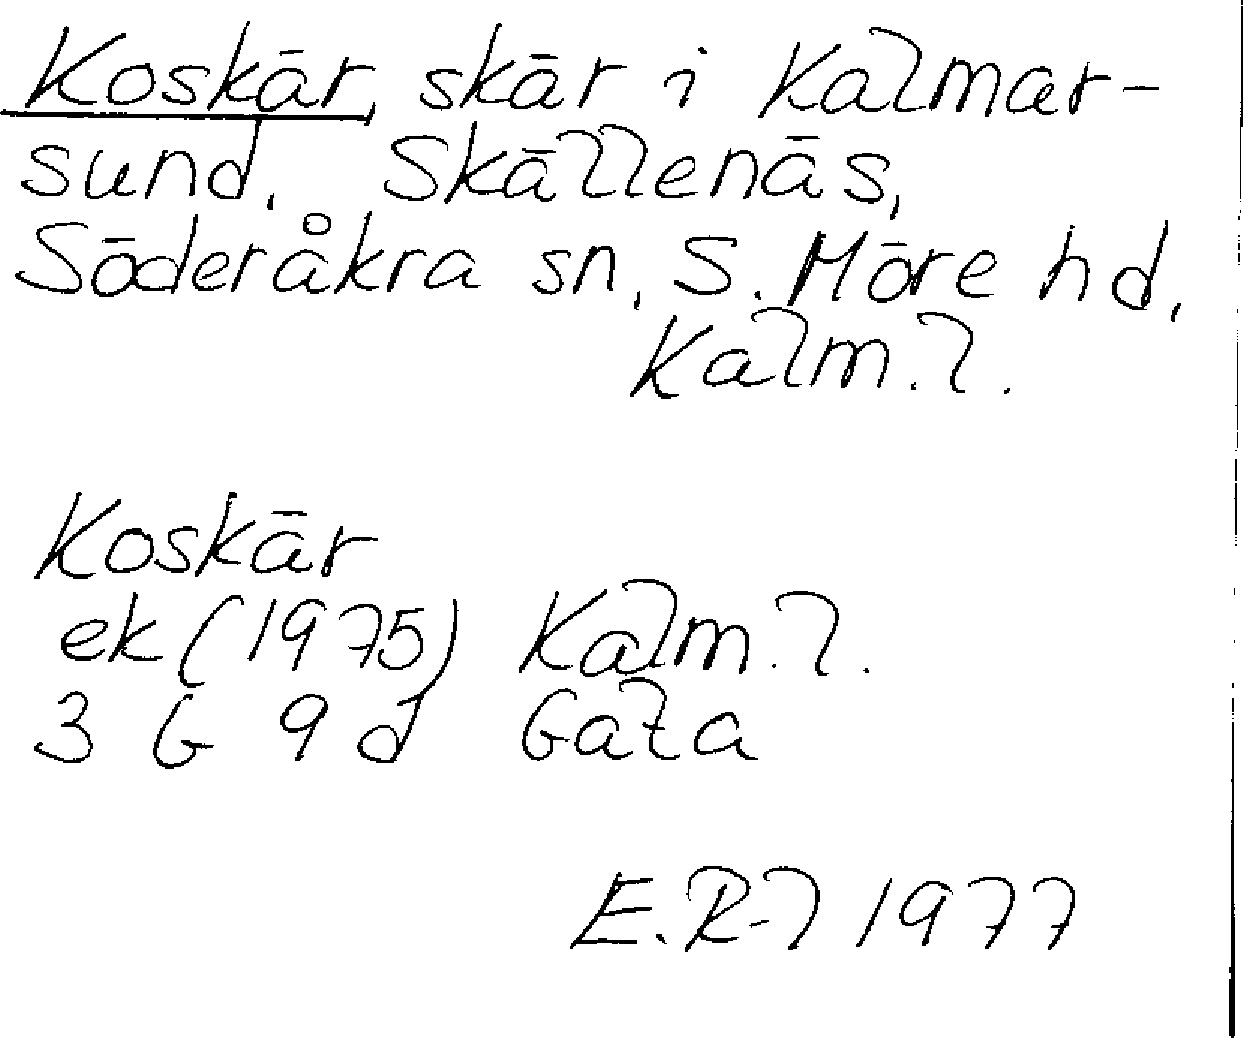 Koskär, skär i Kalmar-
sund. Skällenäs,
Söderåkra sn, S. Möre hd,
Kalm. l.
Koskär
ek (1975) Kalm. l.
3 G 9 d Gata
E. R-l 1977